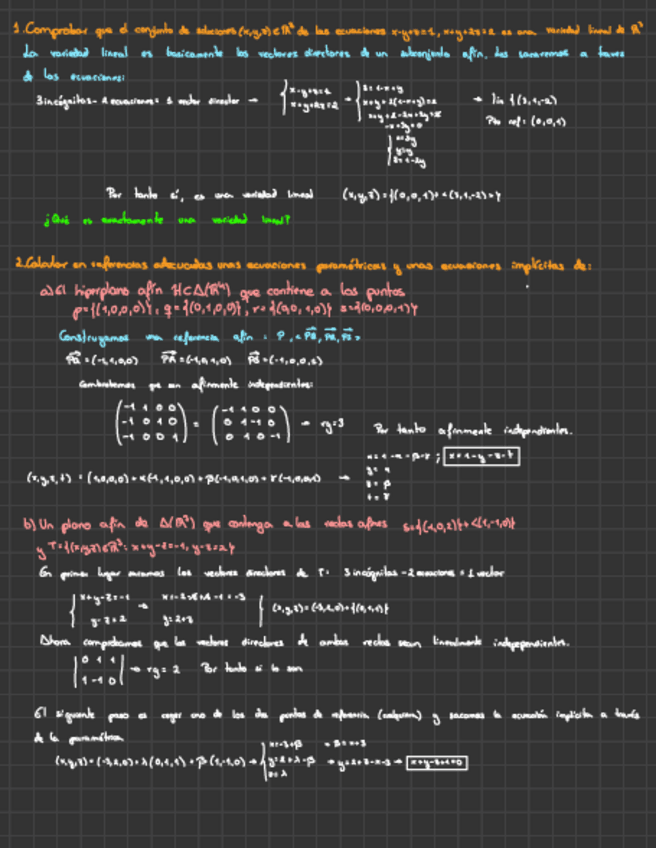 1. Comprobar que el conjunto de soluciones (x,y,z)∈ℝ³ de las ecuaciones x-y+z=1, x+y+2z=2 es una variedad lineal de ℝ³
La variedad lineal es basicamente los vectores directores de un subconjunto afín, los sacaremos a traves
de las ecuaciones:
3 incógnitas - 2 ecuaciones = 1 vector director →
Por tanto sí, es una variedad lineal (x,y,z)={(0,0,1)+<(3,1,-2)>}
¿Qué es exactamente una variedad lineal?
2. Calcular en referencias adecuadas unas ecuaciones paramétricas y unas ecuaciones implícitas de:
a) El hiperplano afín H⊂A(ℝ⁴) que contiene a los puntos
p={(1,0,0,0)}, q={(0,1,0,0)}, r={(0,0,1,0)} s={(0,0,0,1)}
Construyamos una referencia afín: P,
PQ=(-1,1,0,0) PR=(-1,0,1,0) PS=(-1,0,0,1)
Comprobemos que son afinmente independientes:
(-1 1 0 0
-1 0 1 0
-1 0 0 1) = (-1 1 0 0
0 1 -1 0
0 1 0 -1) → rg=3
Por tanto afinmente independientes.
(x,y,z,t) = (1,0,0,0)+α(-1,1,0,0)+β(-1,0,1,0)+γ(-1,0,0,1) →
x=1-α-β-γ; x=1-y-z-t
y=α
z=β
t=γ
b) Un plano afín de A(ℝ³) que contenga a las rectas afines S={(1,0,2)}+<(1,-1,0)>
y T={(x,y,z)∈ℝ³: x+y-z=-1, y-z=2}
En primer lugar sacamos los vectores directores de T: 3 incógnitas - 2 ecuaciones = 1 vector
x+y-z=-1
y-z=2
y=2+z
Ahora comprobamos que los vectores directores de ambas rectas sean linealmente independientes.
|0 1 1
1 -1 0| → rg=2 Por tanto si lo son
El siguiente paso es coger uno de los dos puntos de referencia (cualquiera) y sacamos la ecuación implícita a través
de la paramétrica
(x,y,z)=(-3,2,0)+λ(0,1,1)+β(1,-1,0) →
x=-3+β → β=x+3
y=2+λ-β → y=2+z-x-3 → x+y-z+1=0
z=λ